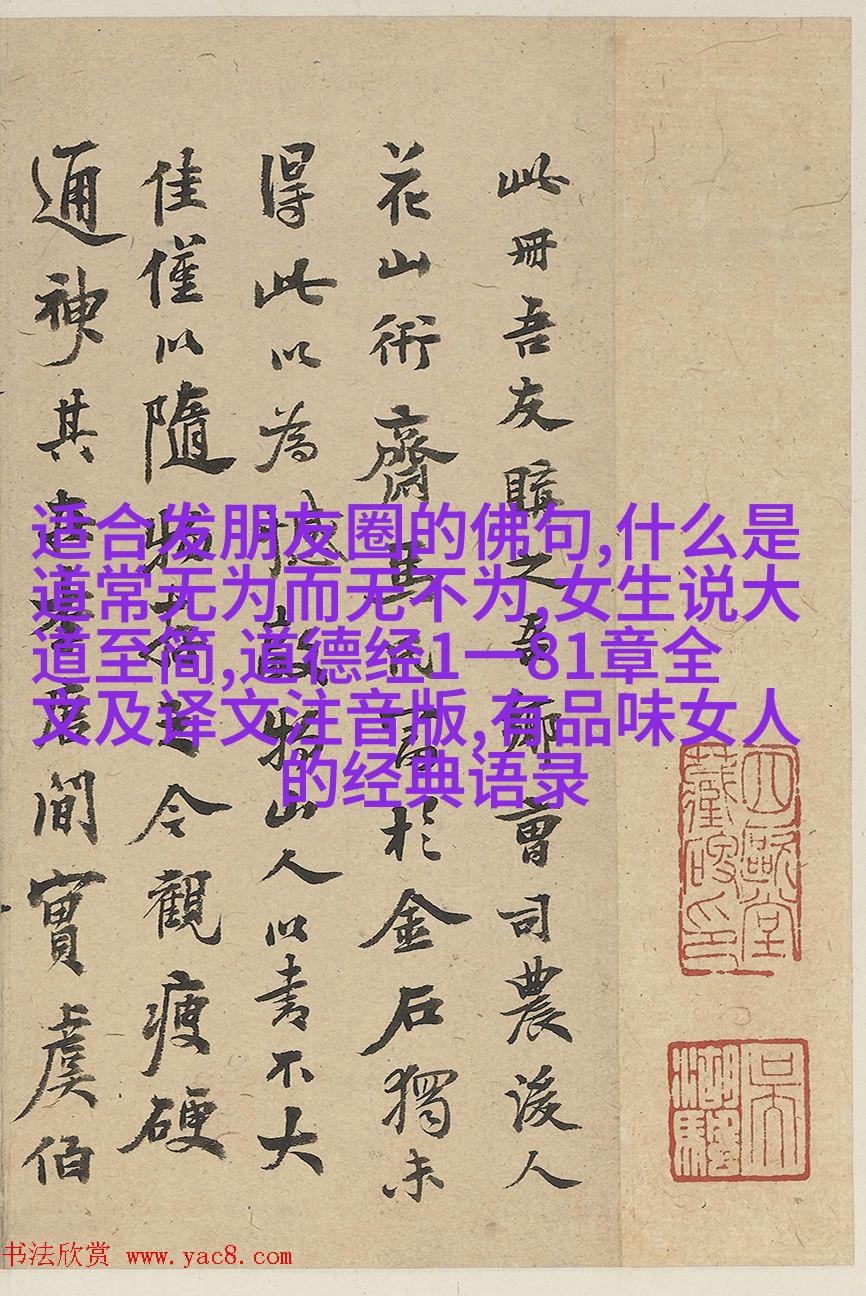 此冊吾友購之吾鄉曹司農後人
花山術齋馬氏富於金石獨未
得此以為憾敵物山人以書不大
佳僅以隨
令觀瘦硬
通神其書
間實虞伯
适合发朋友圈的佛句,什么是
道常无为而无不为,女生说大
道至简,道德经1一81章全
文及译文注音版,有品味女人
的经典语录
书法欣赏 www.yac8.com